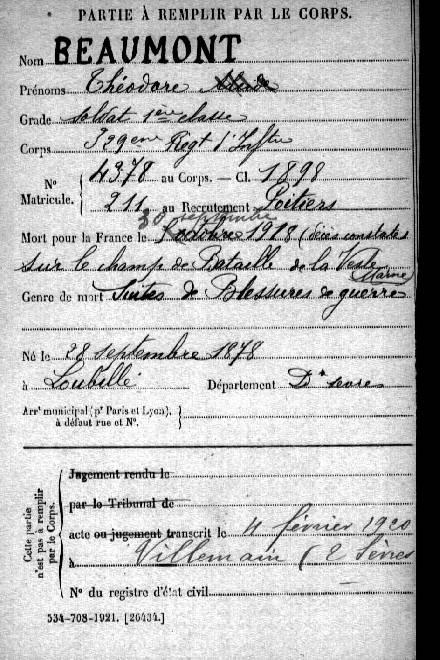 PARTIE À REMPLIR PAR LE CORPS.
Nom BEAUMONT
Prénoms Théodore
Grade soldat 1ère classe
Corps 329eme Régt d'Inftie
4378 au Corps. — Cl. 1898
N°
Matricule.
211 au Recrutement Poitiers
30 septembre
Mort pour la France le octobre 1918 (décès constaté
sur le champ de Bataille de la Vesle
Marne)
Genre de mort Suites de Blessures de guerre
Né le 28 septembre 1878
à Loubillé Département Dx sèvres
Arrt municipal (pr Paris et Lyon),
à défaut rue et N°.
Cette partie
n'est pas à remplir
par le Corps.
Jugement rendu le
par le Tribunal de
acte ou jugement transcrit le 4 février 1920
à Villemain (2 Sèvres
N° du registre d'état civil
534-708-1921. [26434.]